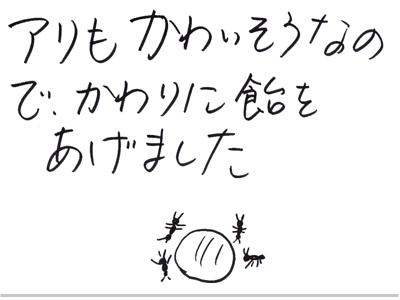 アリもかわいそうなの
で、かわりに飴を
あげました